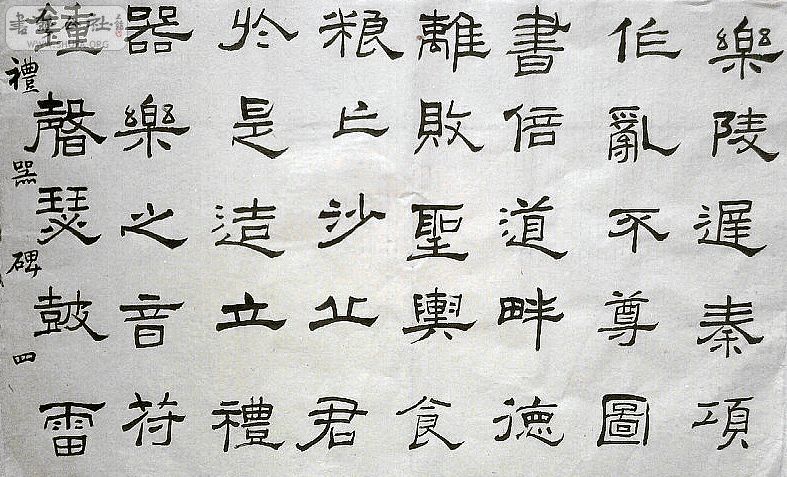 樂陵遲秦項
作亂不尊圖
書倍道畔德
離敗聖輿食
粮亡沙丘君
於是造立禮
器樂之音苻
鍾磬瑟鼓雷
禮器碑四